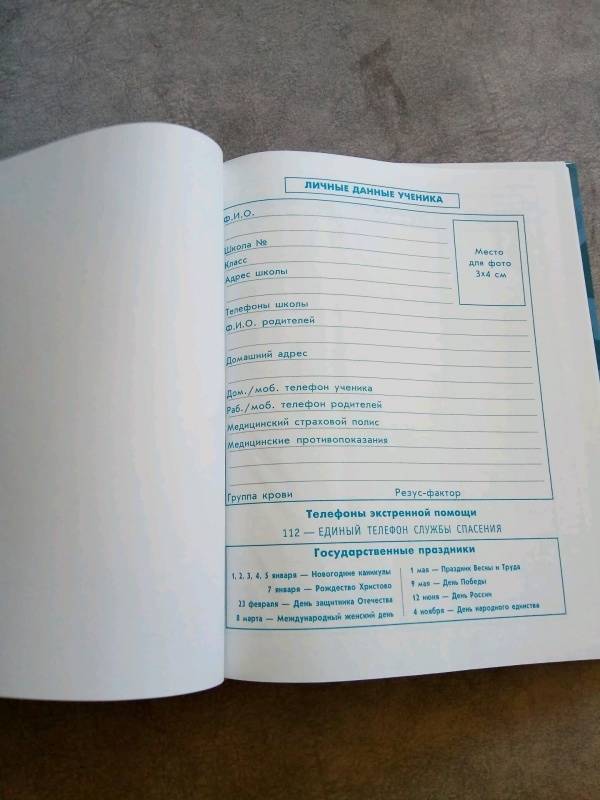 ЛИЧНЫЕ ДАННЫЕ УЧЕНИКА
Ф.И.О.
Школа №
Класс
Адрес школы
Место
для фото
3х4 см
Телефоны школы
Ф.И.О. родителей
Домашний адрес
Дом./моб. телефон ученика
Раб./моб. телефон родителей
Медицинский страховой полис
Медицинские противопоказания
Группа крови Резус-фактор
Телефоны экстренной помощи
112 — ЕДИНЫЙ ТЕЛЕФОН СЛУЖБЫ СПАСЕНИЯ
Государственные праздники
1, 2, 3, 4, 5 января — Новогодние каникулы
7 января — Рождество Христово
23 февраля — День защитника Отечества
8 марта — Международный женский день
1 мая — Праздник Весны и Труда
9 мая — День Победы
12 июня — День России
4 ноября — День народного единства